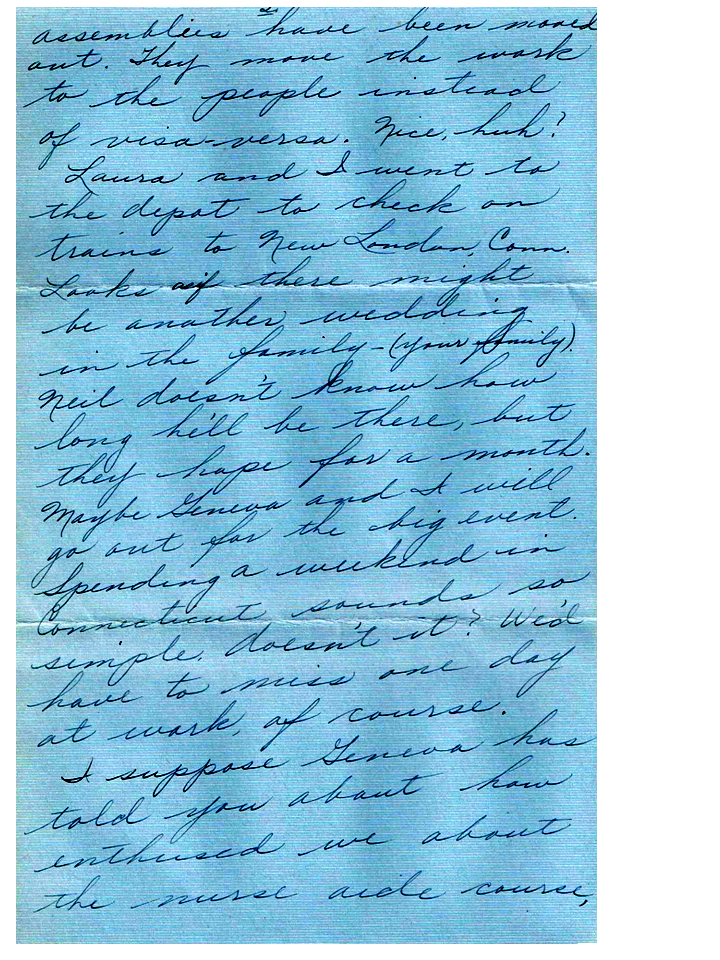 assemblies have been moved
out. They move the work
to the people instead
of visa-versa. Nice, huh?
Laura and I went to
the depot to check on
trains to New London, Conn.
Looks as if there might
be another wedding
in the family - (your family).
Neil doesn't know how
long he'll be there, but
they hope for a month.
Maybe Geneva and I will
go out for the big event.
Spending a weekend in
Connecticut sounds so
simple, doesn't it? We'd
have to miss one day
at work, of course.
I suppose Geneva has
told you about how
enthused we about
the nurse aide course,